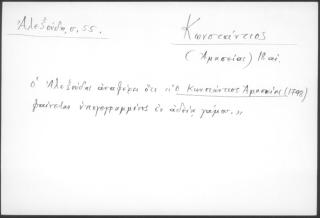 Ἀλεξούδη, σ. 55.
Κωνστάντιος
(Ἀμασείας) 18 αἰ.
ὁ Ἀλεξούδης ἀναφέρει ὅτι "ὁ Κωνστάντιος Ἀμασείας (1792)
φαίνεται ὑπογεγραμμένος ἐν ἀδείᾳ γάμου.„